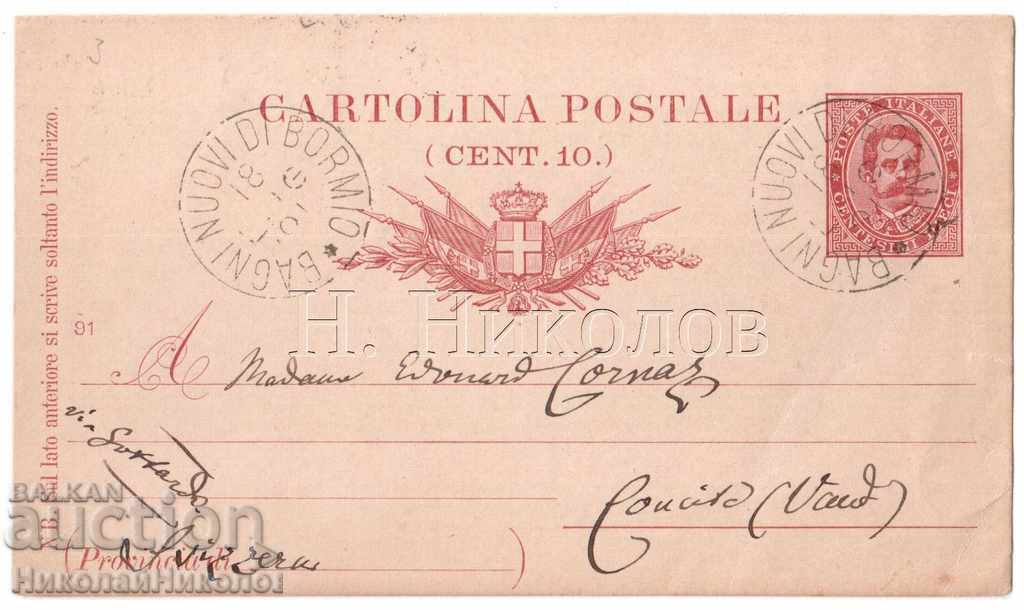 3
CARTOLINA POSTALE
(CENT. 10.)
BAGNI NUOVI DI BORMIO
18
BAGNI NUOVI DI BORMIO
18
POSTE ITALIANE
CENTESIMI DIECI
N.B. Sul lato anteriore si scrive soltanto l'indirizzo.
91
Н. Николов
A Madame Edouard Cornaz
via Gottardo
Concise (Vaud)
(Provincia di
Svizzera
BALKAN
auction
НиколайНиколов